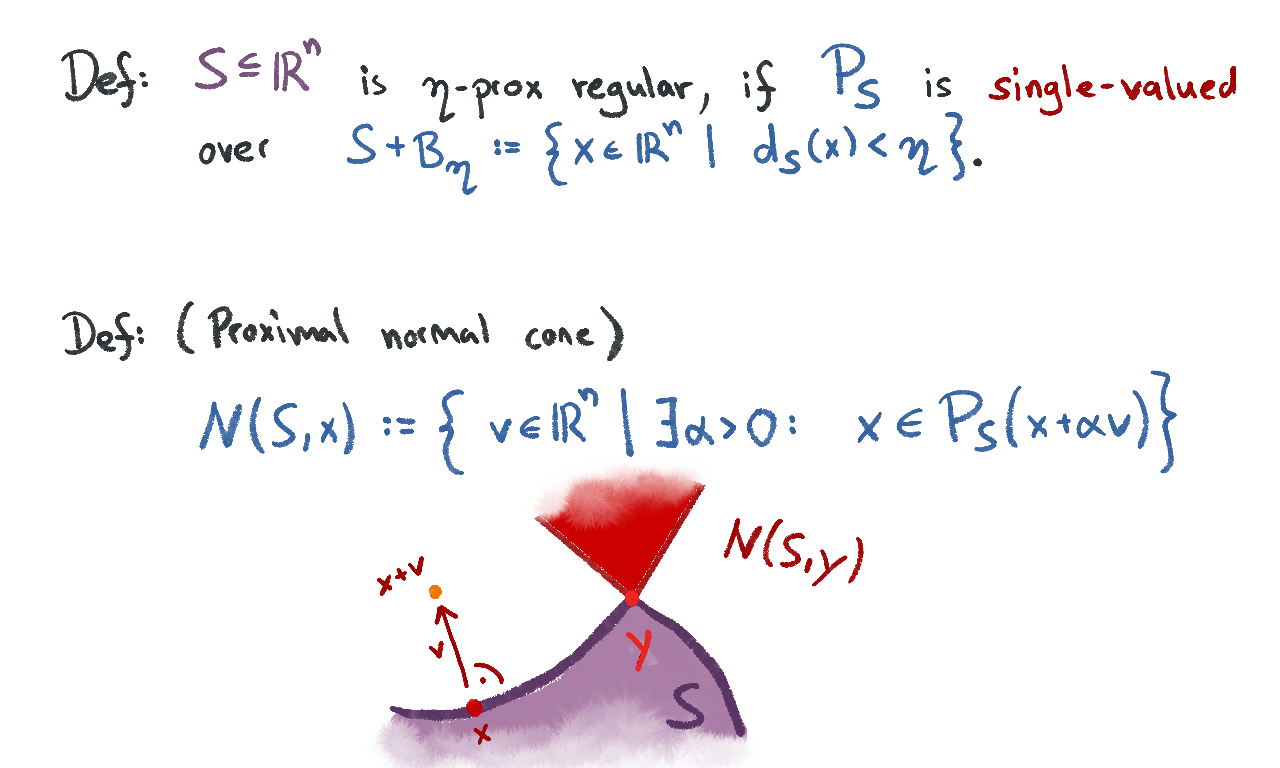 Def: S ⊆ ℝⁿ is η-prox regular, if P_S is single-valued
over S + B_η := { x ∈ ℝⁿ | d_S(x) < η }.
Def: (Proximal normal cone)
N(S,x) := { v ∈ ℝⁿ | ∃α > 0: x ∈ P_S(x+αv) }
N(S,y)
x+v
v
y
S
x